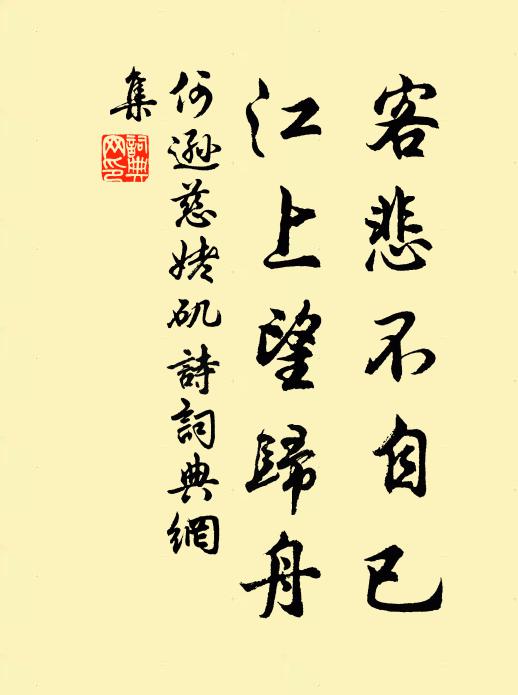 客悲不自已
江上望歸舟
何遜慈姥矶詩詞典網
集
詞典网印